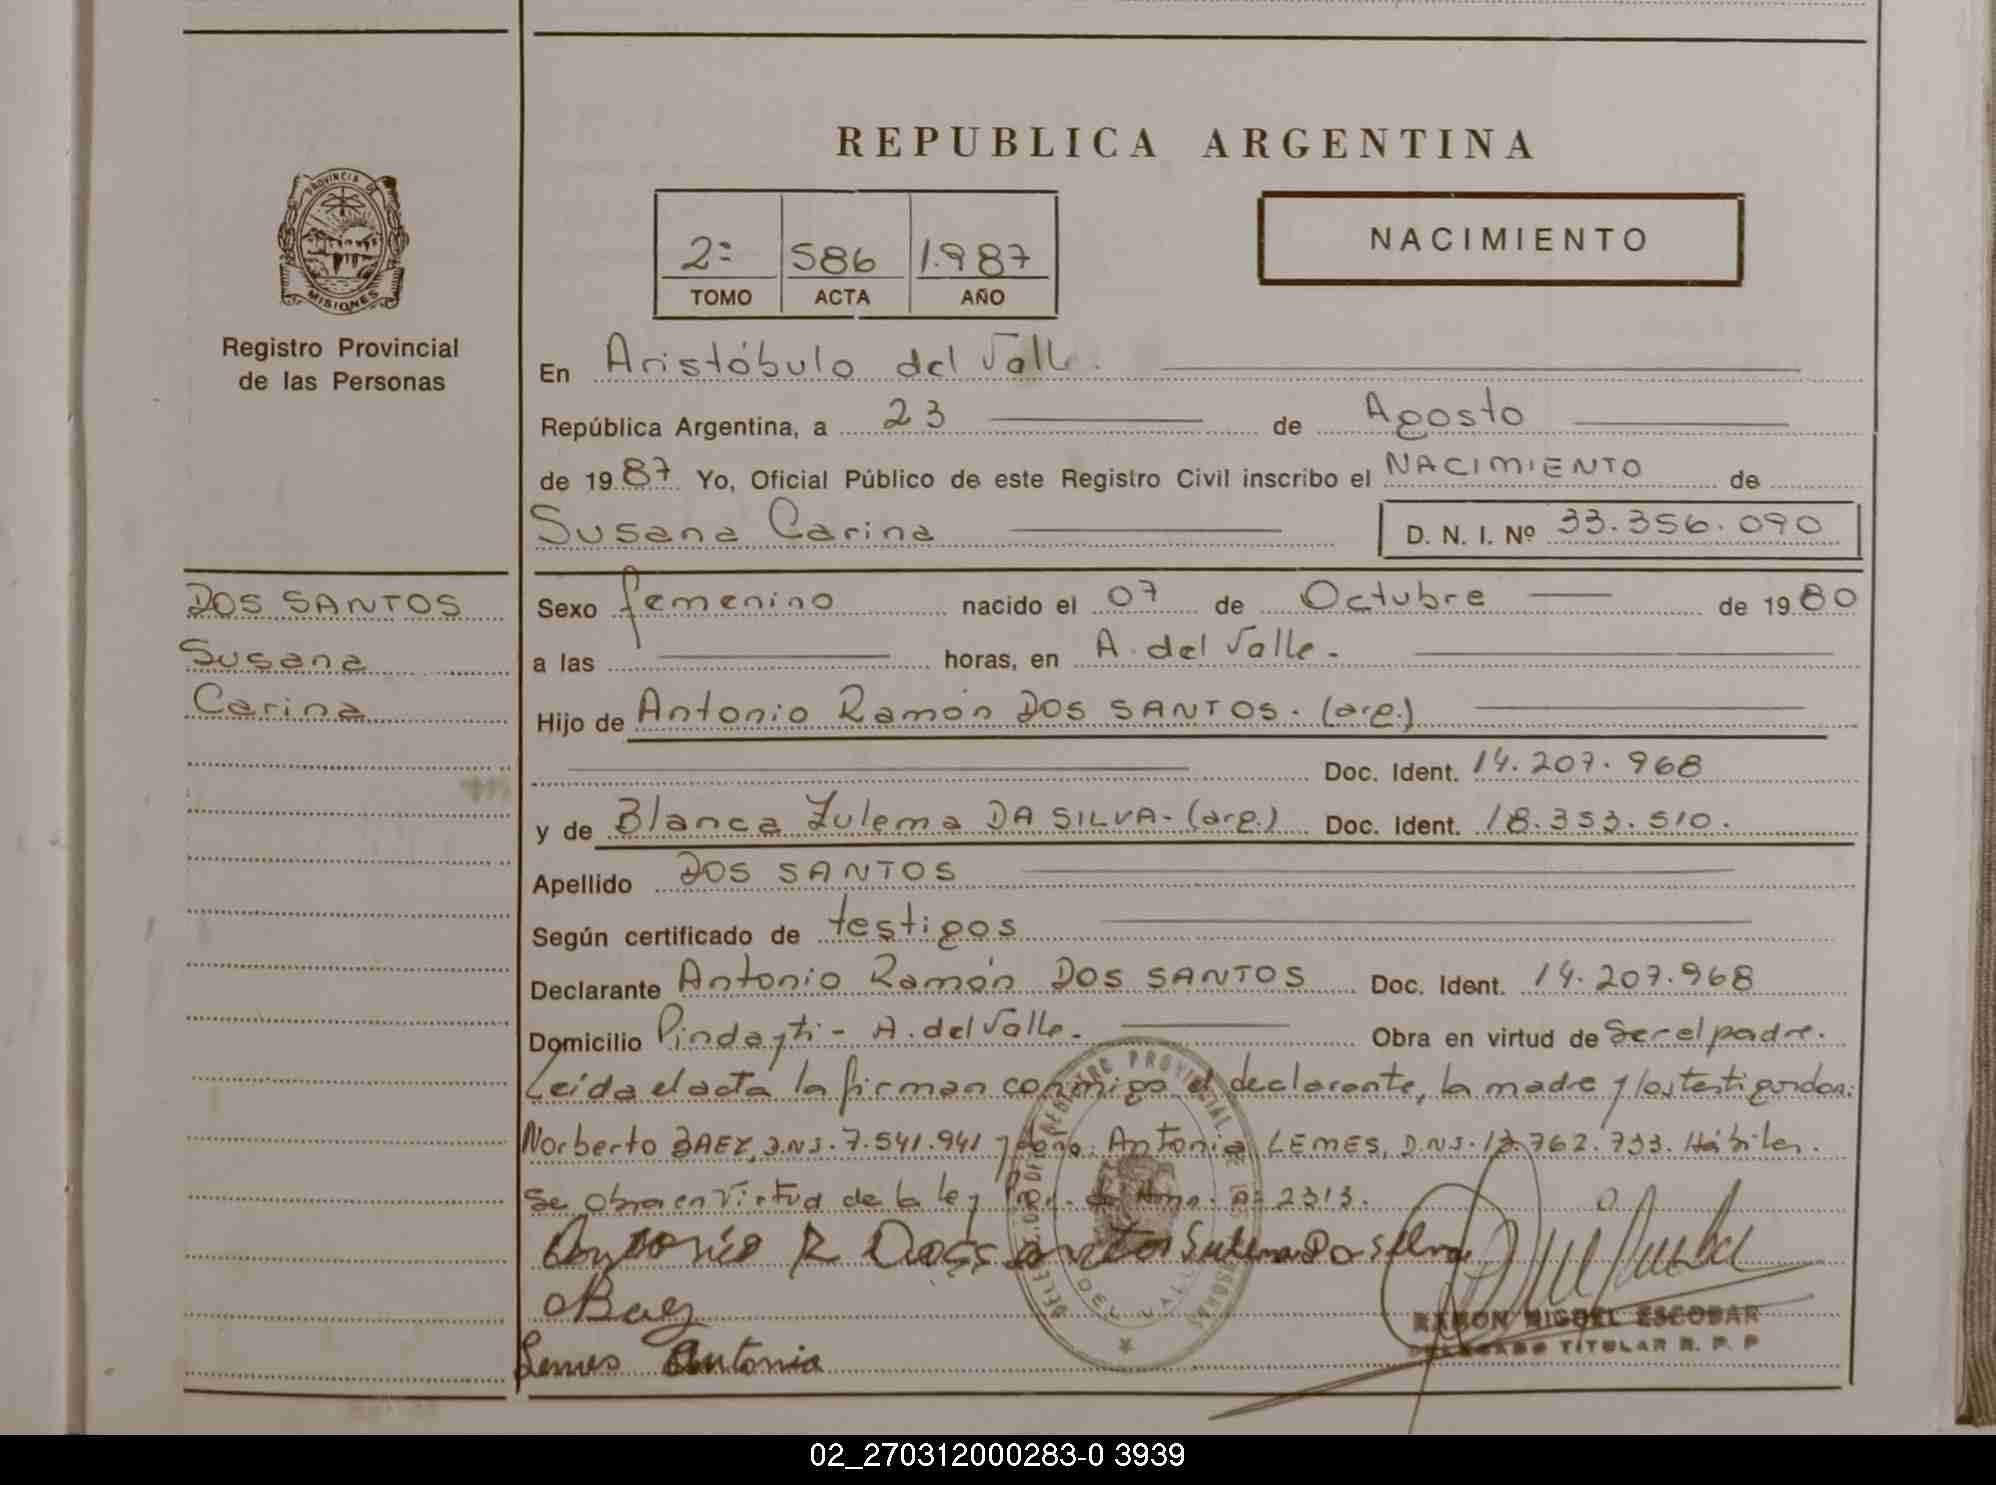 REPUBLICA ARGENTINA
PROVINCIA DE
MISIONES
Registro Provincial
de las Personas
2º 586 1.987
TOMO ACTA AÑO
NACIMIENTO
En Aristóbulo del Valle.
República Argentina, a 23 de Agosto
de 1987 Yo, Oficial Público de este Registro Civil inscribo el NACIMIENTO de
Susana Carina D. N. I. Nº 33.356.090
DOS SANTOS
Susana
Carina
Sexo femenino nacido el 07 de Octubre de 1980
a las horas, en A. del Valle.
Hijo de Antonio Ramón DOS SANTOS. (arg.)
Doc. Ident. 14.207.968
y de Blanca Zulema DA SILVA - (arg.) Doc. Ident. 18.353.510.
Apellido DOS SANTOS
Según certificado de testigos
Declarante Antonio Ramón DOS SANTOS Doc. Ident. 14.207.968
Domicilio Pindayti - A. del Valle. Obra en virtud de Ser el padre.
Leída el acta la firman conmigo el declarante, la madre y los testigos don:
Norberto BAEZ, D.N.I. 7.541.941 y doña: Antonia LEMES, D.N.I. 13.762.733. Hábiles.
Se obra en virtud de la ley nº 2313.
Antonio R Dos Santos Sulema Da Silva
Baez
Lemes Antonia
RAMON MIGUEL ESCOBAR
DELEGADO TITULAR R. P. P
02_270312000283-0 3939